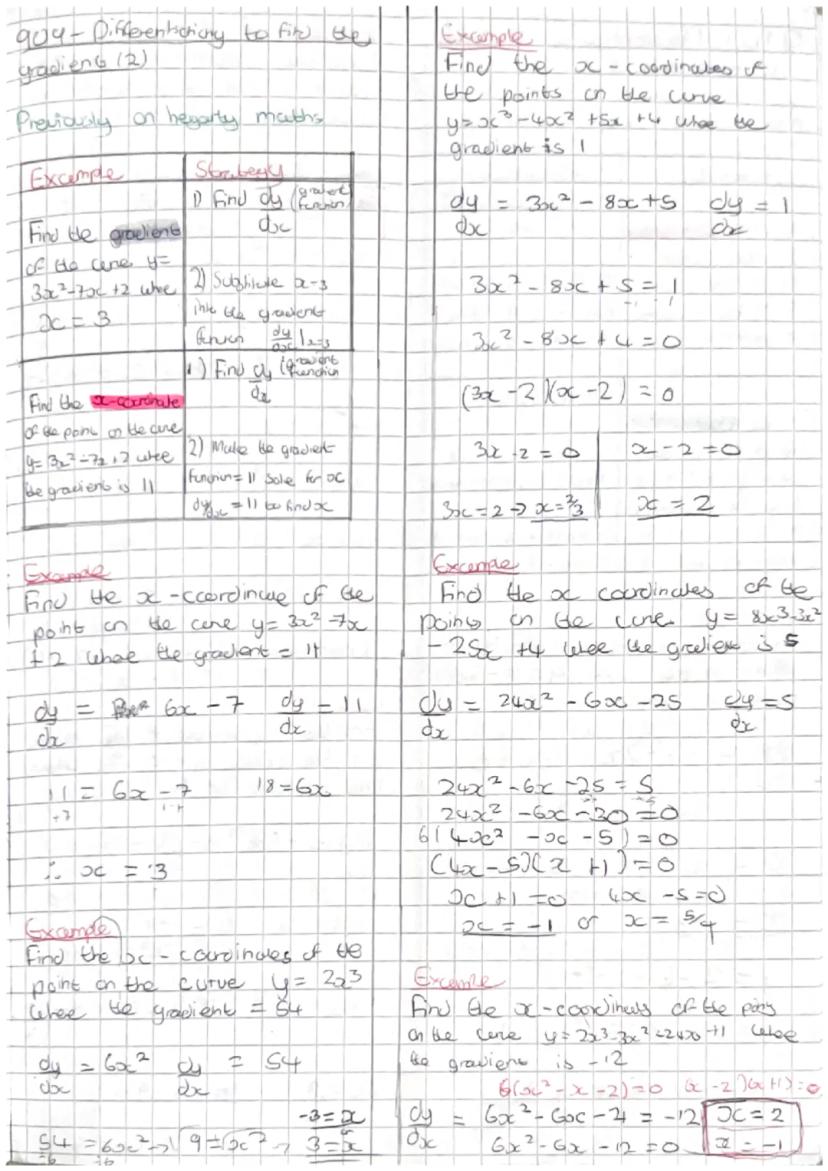 904 - Differentiationy to find the
gradient (2)
Previously on hegarty maths
Example
Strategy
Find the gradient
of the curve y=
3x²-7x+2 where
x = 3
1) Find dy/dx (gradient function)
2) Substitute x=3
into the gradient
function dy/dx |x=3
Find the x-coordinate
of the point on the curve
y=3x²-7x+2 where
the gradient is 11
1) Find dy/dx (gradient function
2) Make the gradient
function = 11 solve for x
dy/dx = 11 to find x
Example
Find the x-coordinate of the
point on the curve y= 3x² -7x
+2 where the gradient = 11
dy/dx = 6x - 7 dy/dx = 11
11 = 6x - 7 18 = 6x
+7 +7
∴ x = 3
Example
Find the x-coordinates of the
point on the curve y = 2x³
where the gradient = 54
dy/dx = 6x² dy/dx = 54
-3 = x
54 = 6x² → √9 = √x² → 3 = x
÷6 ÷6
Example
Find the x-coordinates of
the points on the curve
y= x³ -4x² +5x +4 where the
gradient is 1
dy/dx = 3x² - 8x + 5 dy/dx = 1
3x² - 8x + 5 = 1
-1 -1
3x² - 8x + 4 = 0
(3x - 2)(x - 2) = 0
3x - 2 = 0 x - 2 = 0
3x = 2 → x = 2/3 x = 2
Example
Find the x coordinates of the
points on the curve y = 8x³-3x²
- 25x +4 where the gradient is 5
dy/dx = 24x² - 6x - 25 dy/dx = 5
24x² - 6x - 25 = 5
-5 -5
24x² - 6x - 30 = 0
6(4x² - x - 5) = 0
(4x - 5)(x + 1) = 0
x + 1 = 0 4x - 5 = 0
x = -1 or x = 5/4
Example
Find the x-coordinates of the point
on the curve y = 2x³-3x²-24x+1 where
the gradient is -12
6(x² - x - 2) = 0 (x - 2)(x+1) = 0
dy/dx = 6x² - 6x - 24 = -12 x = 2
6x² - 6x - 12 = 0 x = -1